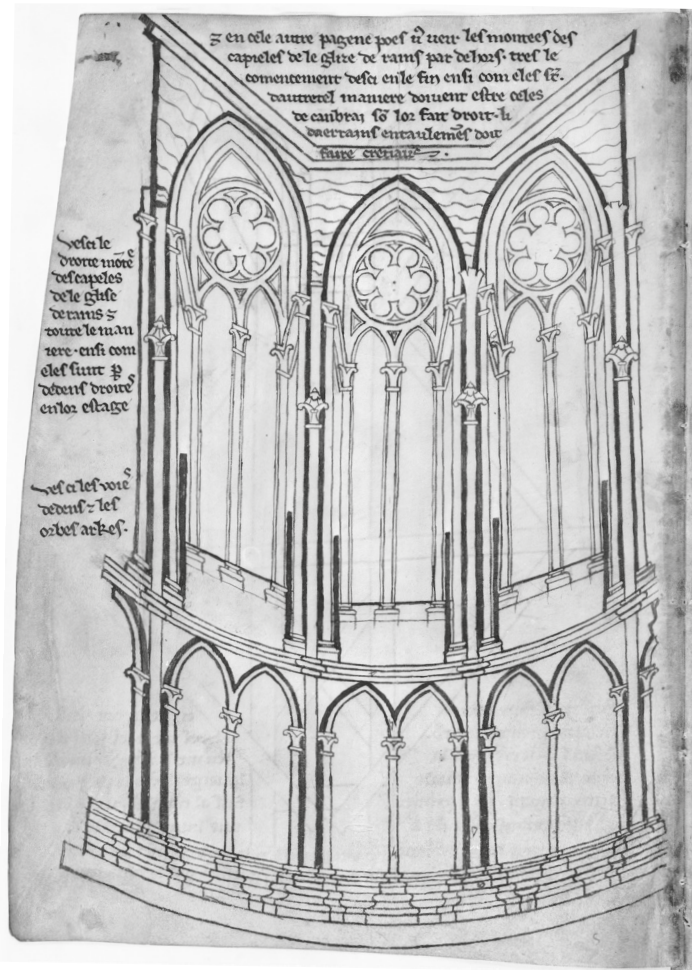 ⁊ en cele autre pagene poes vͦ veir les montees des
capieles de le glize de rains par dehors. tres le
comencement desci en le fin ensi com eles sͭ.
dautretel maniere doivent estre celes
de canbrai sͦ lor fait droit. li
daerrains entaulemēs doit
faire cretiaus.
vesci le
droite mōtee
des capeles
de le glise
de rains ⁊
toute le man
iere. ensi com
eles sunt p̱
dedens droites
en lor estage
ves ci les voies
dedens ⁊ les
orbes arkes.